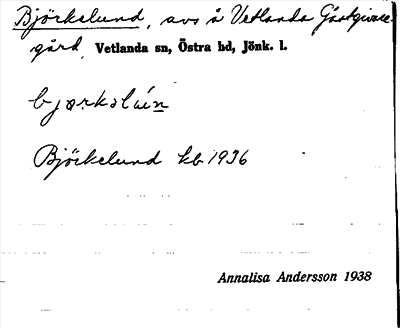 Björkelund, avs å Vetlanda Gästgivare-
gård, Vetlanda sn, Östra hd, Jönk. l.
bjørkəlún
Björkelund kb 1936
Annalisa Andersson 1938